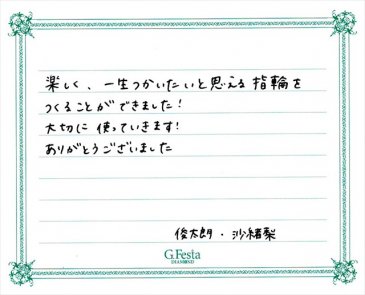 楽しく、一生つかいたいと思える指輪を
つくることができました!
大切に使っていきます!
ありがとうございました
俊太朗・沙緒梨
G.Festa
DIAMOND